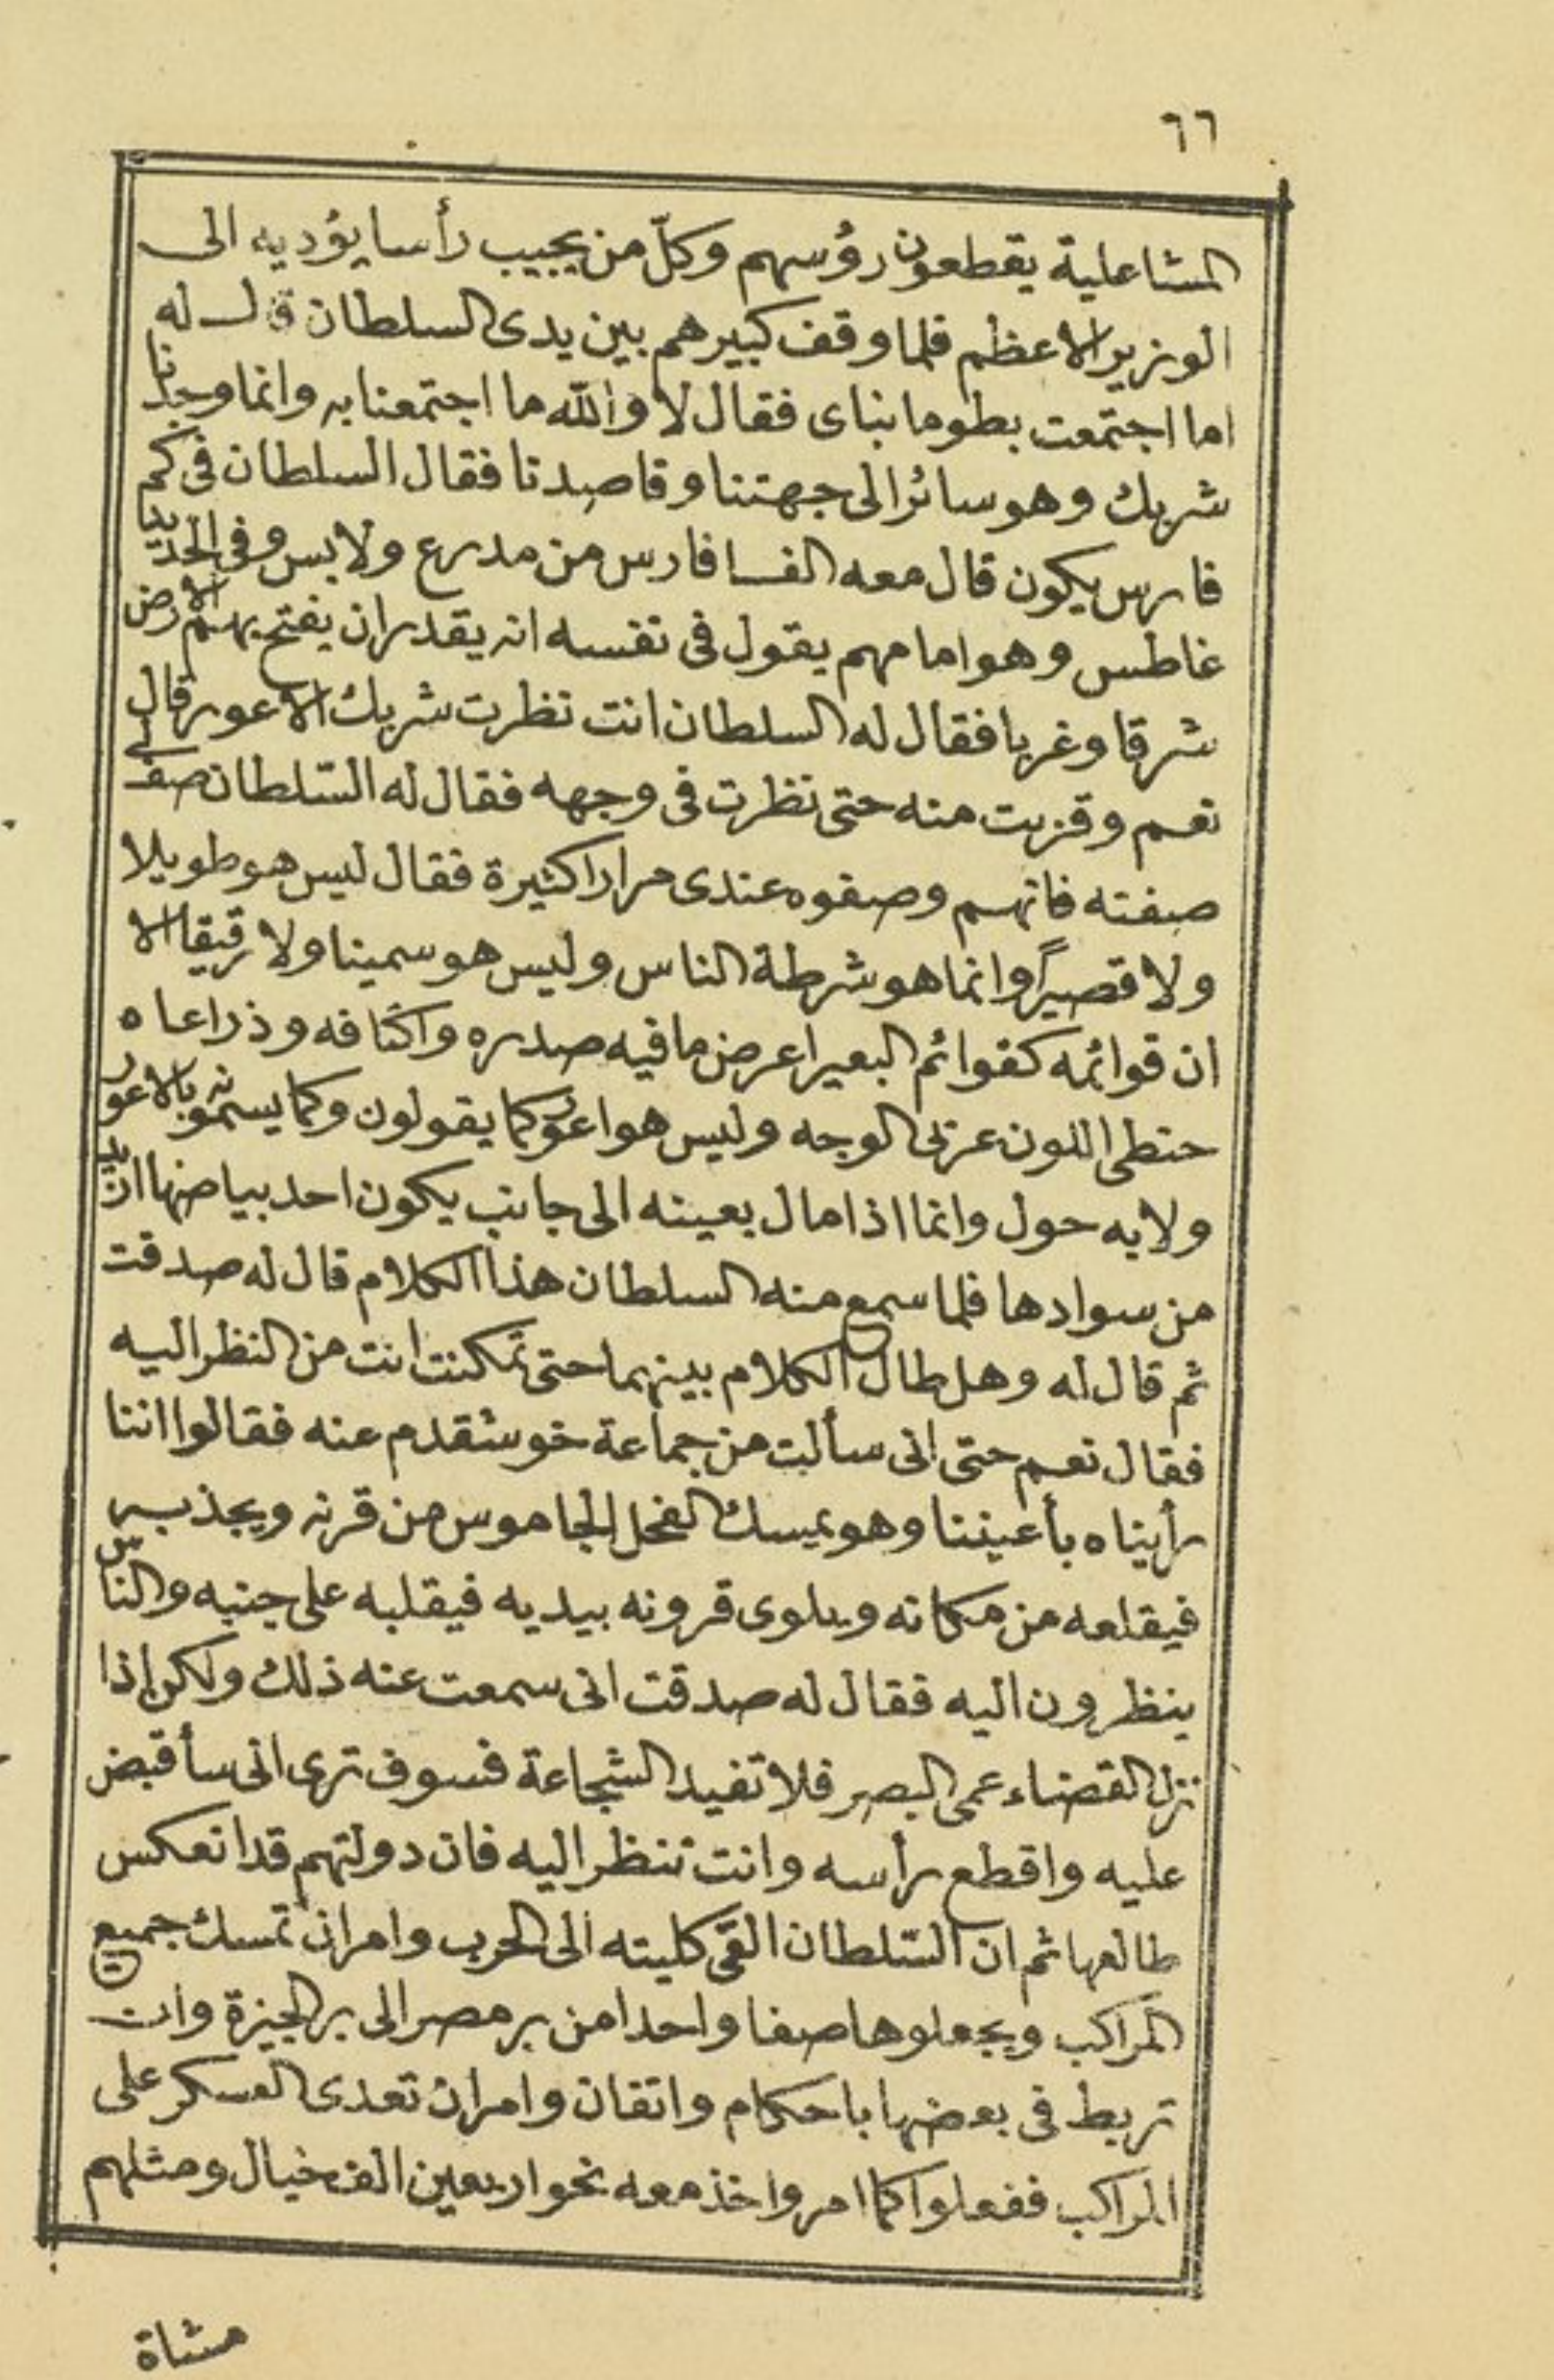 ٦٦
المشاعلية يقطعون رؤسهم وكلّ من يجيب رأسا يؤديه الى
الوزير الاعظم فلما وقف كبيرهم بين يدى السلطان قال له
اما اجتمعت بطوما بناى فقال لا والله ما اجتمعنا به وانما وجدنا
شربك وهو سائر الى جهتنا وقاصدنا فقال السلطان فى كم
فارس يكون قال معه الفا فارس من مدرع ولابس وفى الحديد
غاطس وهو امامهم يقول فى نفسه انه يقدر ان يفتح بهم الارض
شرقا وغربا فقال له السلطان انت نظرت شربك الاعور قال
نعم وقربت منه حتى نظرت فى وجهه فقال له السّلطان صف لى
صفته فانهم وصفوه عندى مرارا كثيرة فقال ليس هو طويلا
ولا قصيراً وانما هو شرطة الناس وليس هو سمينا ولا رقيقا الا
ان قوائمه كقوائم البعير اعرض ما فيه صدره واكتافه وذراعاه
حنطى اللون عربى الوجه وليس هو اعور كما يقولون وكما يسمونه بالاعور
ولا به حول وانما اذا مال بعينه الى جانب يكون احد بياضها ازيد
من سوادها فلما سمع منه السلطان هذا الكلام قال له صدقت
ثم قال له وهل طال الكلام بينهما حتى تمكنت انت من النظر اليه
فقال نعم حتى انى سألت من جماعة خوشقدم عنه فقالوا اننا
رأيناه بأعيننا وهو يمسك الفحل الجاموس من قرنه ويجذبه
فيقلعه من مكانه ويلوى قرونه بيديه فيقلبه على جنبه والناس
ينظرون اليه فقال له صدقت انى سمعت عنه ذلك ولكن إذا
نزل القضاء عمى البصر فلا تفيد الشجاعة فسوف ترى انى سأقبض
عليه واقطع رأسه وانت تنظر اليه فان دولتهم قد انعكس
طالعها ثم ان السّلطان القى كليته الى الحرب وامر ان تمسك جميع
المراكب ويجعلوها صفا واحدا من بر مصر الى بر الجيزة وان
تربط فى بعضها باحكام واتقان وامر ان تعدى العسكر على
المراكب ففعلوا كما امر واخذ معه نحو اربعين الف خيال ومثلهم
مشاة